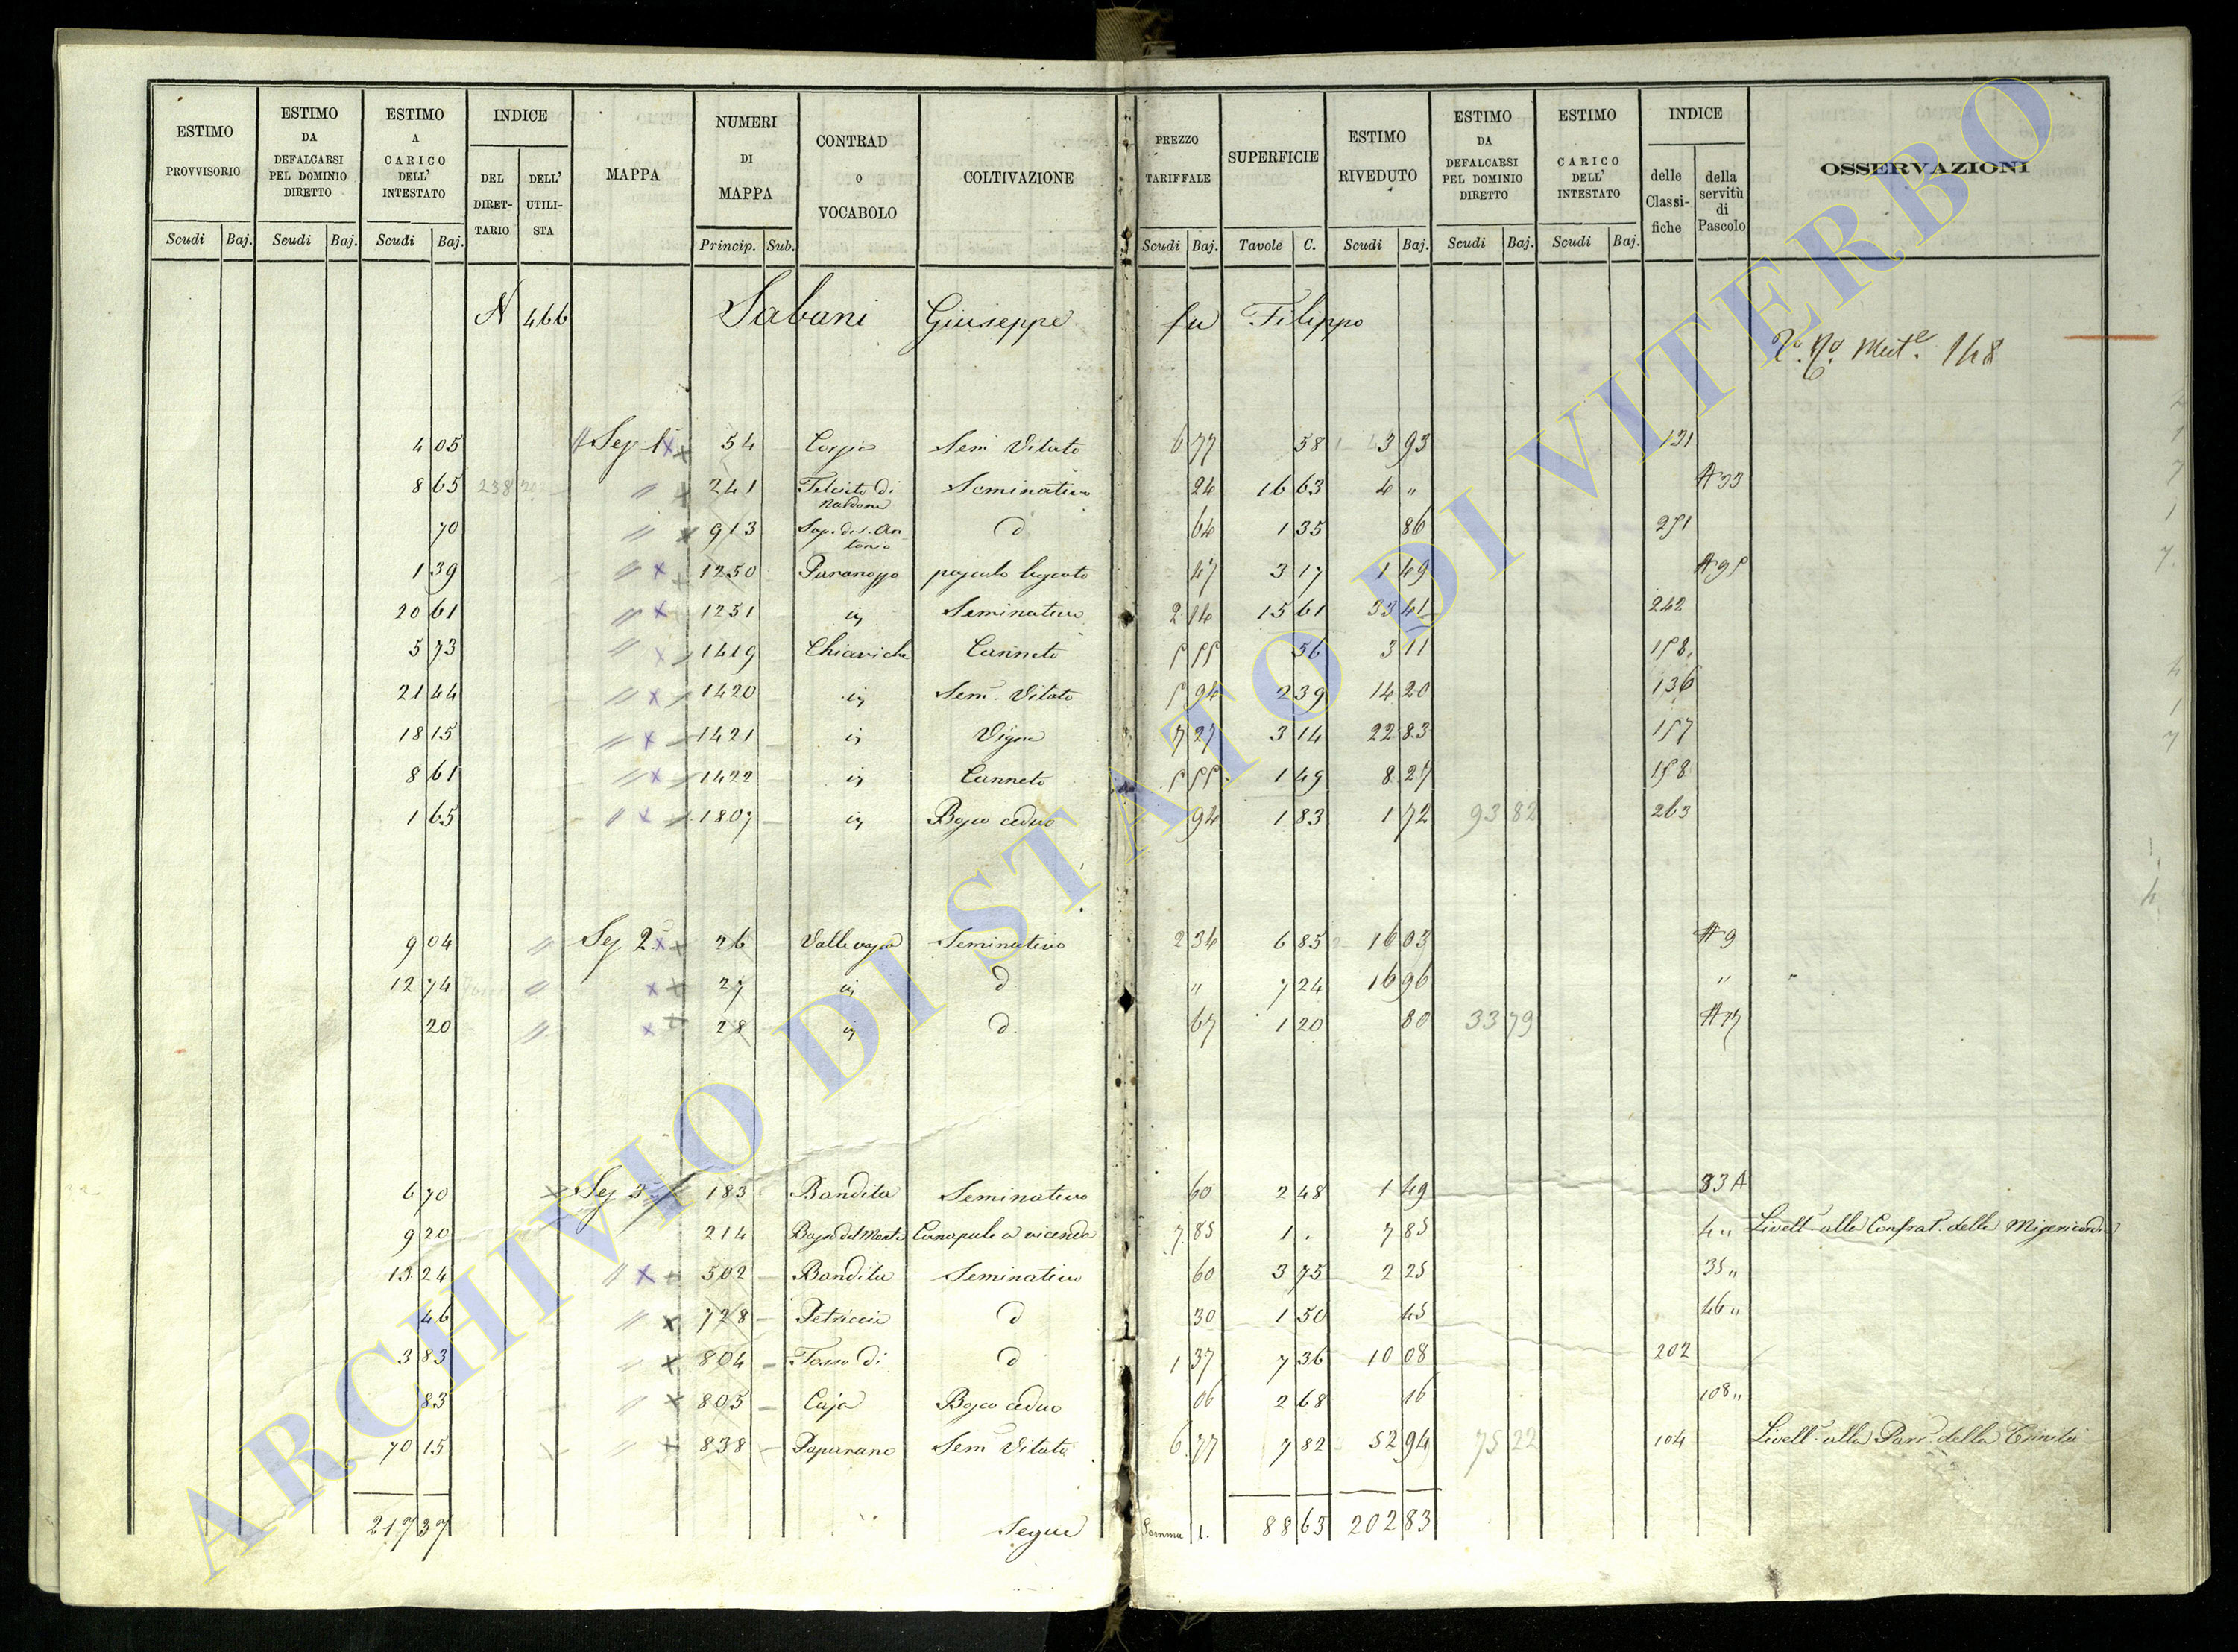 ESTIMO PROVVISORIO
ESTIMO DA DEFALCARSI PEL DOMINIO DIRETTO
ESTIMO A CARICO DELL' INTESTATO
INDICE
DEL DIRET- TARIO
DELL' UTILI- STA
MAPPA
NUMERI DI MAPPA
CONTRAD O VOCABOLO
COLTIVAZIONE
PREZZO TARIFFALE
SUPERFICIE
ESTIMO RIVEDUTO
ESTIMO DA DEFALCARSI PEL DOMINIO DIRETTO
ESTIMO CARICO DELL' INTESTATO
INDICE
delle Classi- fiche
della servitù di Pascolo
OSSERVAZIONI
Scudi Baj. Scudi Baj. Scudi Baj. Princip. Sub. Scudi Baj. Tavole C. Scudi Baj. Scudi Baj. Scudi Baj.
N 466 Sabani Giuseppe fu Filippo
148
4 05 Sez 1 54 Sem Vitato 6 77 58 3 93 131
8 65 238 " 241 di Seminativo 24 16 63 4 " A 33
70 " 913 d 64 1 35 86 271
1 39 " 1250 pascolo 47 3 17 1 49
20 61 " 1251 Seminativo 2 14 15 61 33 41 242
5 73 " 1419 Canneto 5 55 56 3 11 158
21 44 " 1420 Sem. Vitato 5 94 2 39 14 20 136
18 15 " 1421 Vigna 7 27 3 14 22 83 157
8 61 " 1422 Canneto 5 55 1 49 8 27 158
1 65 " 1807 Bosco ceduo 94 1 83 1 72 93 82 263
9 04 " Sez 2 26 Seminativo 2 34 6 85 16 03 A 9
12 74 " 27 d " 7 24 16 96 " "
20 " 28 d 67 1 20 80 33 79
6 70 Sez 3 183 Bandita Seminativo 60 2 48 1 49 33 A
9 20 214 Canapule a vicenda 7 85 1 . 7 85 4 " Livell. alla Confrat. della Misericordia
13 24 " 502 Bandita Seminativo 60 3 75 2 25 35 "
46 " 728 d 30 1 50 45 46 "
3 83 " 804 di d 1 37 7 36 10 08 202
83 " 805 Bosco ceduo 06 2 68 16 108 "
70 15 " 838 Papurano Sem Vitato 6 77 7 82 52 94 75 22 104 Livell. alla Parr. della Trinità
217 37 Segue Somma 1. 88 63 202 83
ARCHIVIO DI STATO DI VITERBO